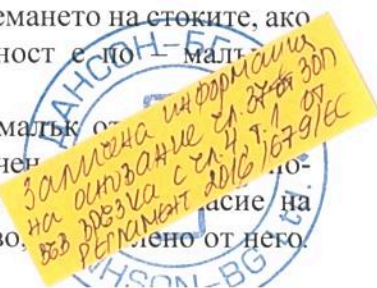 емането на стоките, ако
ност е по – малъ
малък от
чен
по-
асие на
во,
лено от него.
ЗАЛИЧЕНА ИНФОРМАЦИЯ
НА ОСНОВАНИЕ ЧЛ. 37 ЗОП
ВЪВ ВРЪЗКА С ЧЛ. 4, Т. 1 ОТ
РЕГЛАМЕНТ 2016/679/ЕС
HSON-BG